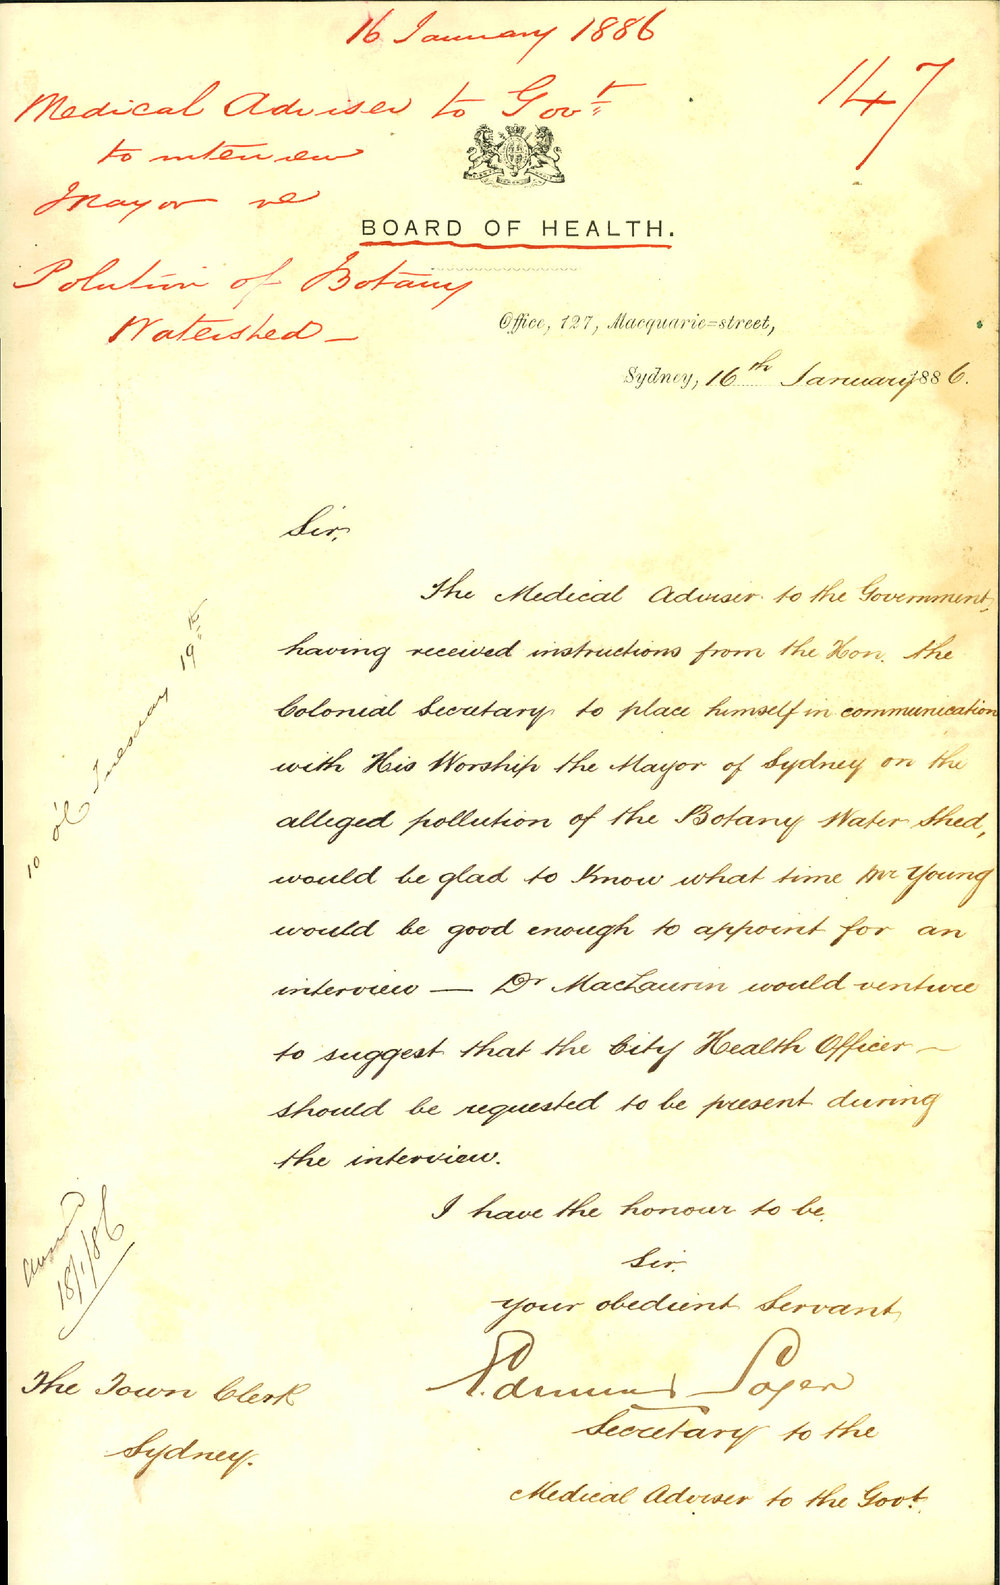 16 January 1886
147
Medical Adviser to Govt
to interview
Mayor re
Polution of Botany
Watershed —
BOARD OF HEALTH.
Office, 127, Macquarie=street,
Sydney, 16th January 1886.
Sir,
The Medical Adviser to the Government,
having received instructions from the Hon. the
Colonial Secretary to place himself in communication
with His Worship the Mayor of Sydney on the
alleged pollution of the Botany Water Shed,
would be glad to know what time Mr Young
would be good enough to appoint for an
interview — Dr MacLaurin would venture
to suggest that the City Health Officer —
should be requested to be present during
the interview.
I have the honour to be,
Sir,
your obedient Servant,
Edmund Sager
Secretary to the
Medical Adviser to the Govt.
10 o'c Tuesday 19th
18/1/86
The Town Clerk
Sydney.